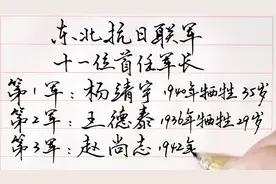 东北抗日联军
十一位首任军长
第1军：杨靖宇 1940年牺牲 35岁
第2军：王德泰 1936年牺牲 29岁
第3军：赵尚志 1942年